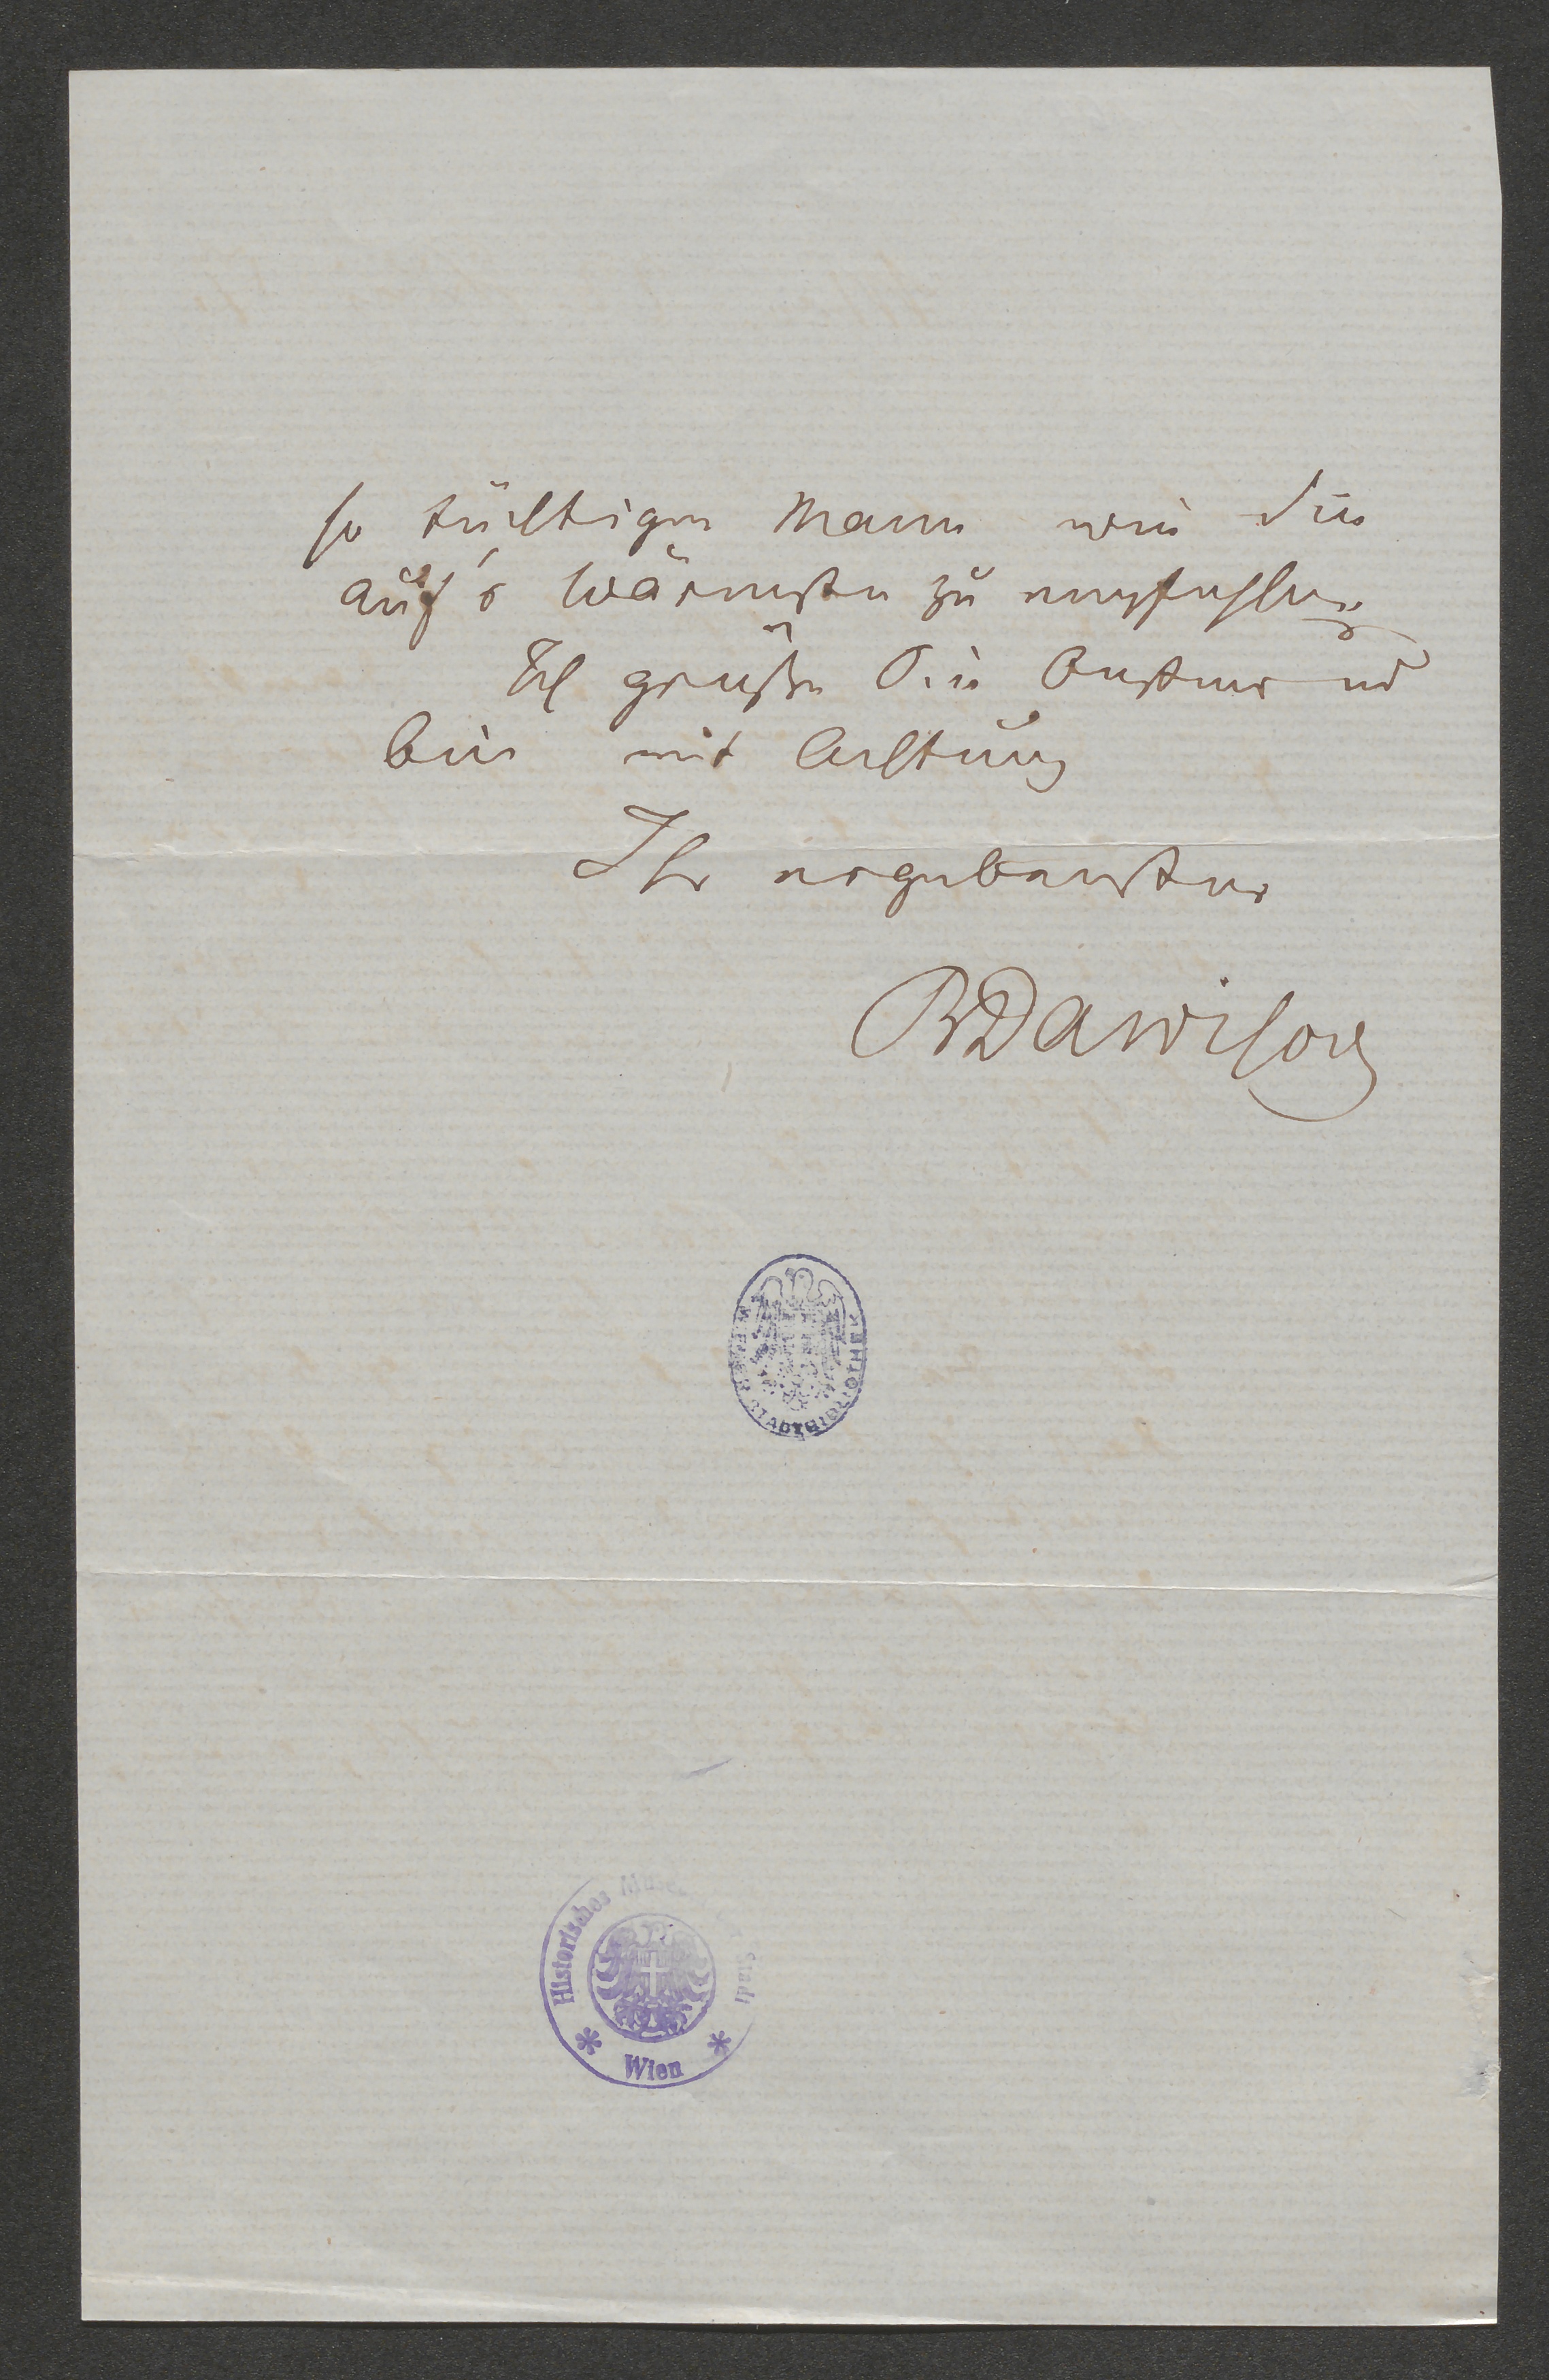 so tüchtigen Mann wie Sie
auf's Wärmste zu empfehlen
Ich grüße Sie bestens und
bin mit Achtung
Ihr ergebenster
BDawison
WIENER STADTBIBLIOTHEK
Historisches Museum Stadt
Wien